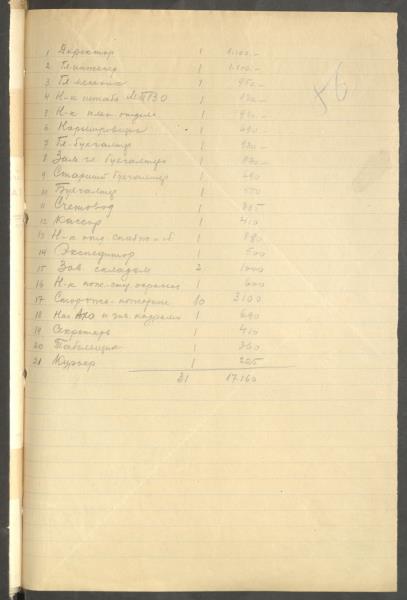 56
1 Директор 1 1.100.-
2 Гл. инженер 1 1.100.-
3 Гл. механик 1 950.-
4 Н-к штаба МПВО 1
5 Н-к план. отдела 1
6 Нормировщик 1 690
7 Гл. бухгалтер 1
8 Зам. гл. бухгалтера 1
9 Старший бухгалтер 1
10 Бухгалтер 1
11 Счетовод 1
12 Кассир 1 410
13 Н-к отд. снабж. 1
14 Экспедитор 1 500
15 Зав. складом 2 1000
16 Н-к охраны 1 600
17 10 3100
18 Нач АХО и зав. кадрами 1 690
19 Секретарь 1 410
20 Табельщик 1 360
21 Курьер 1
31 17.160